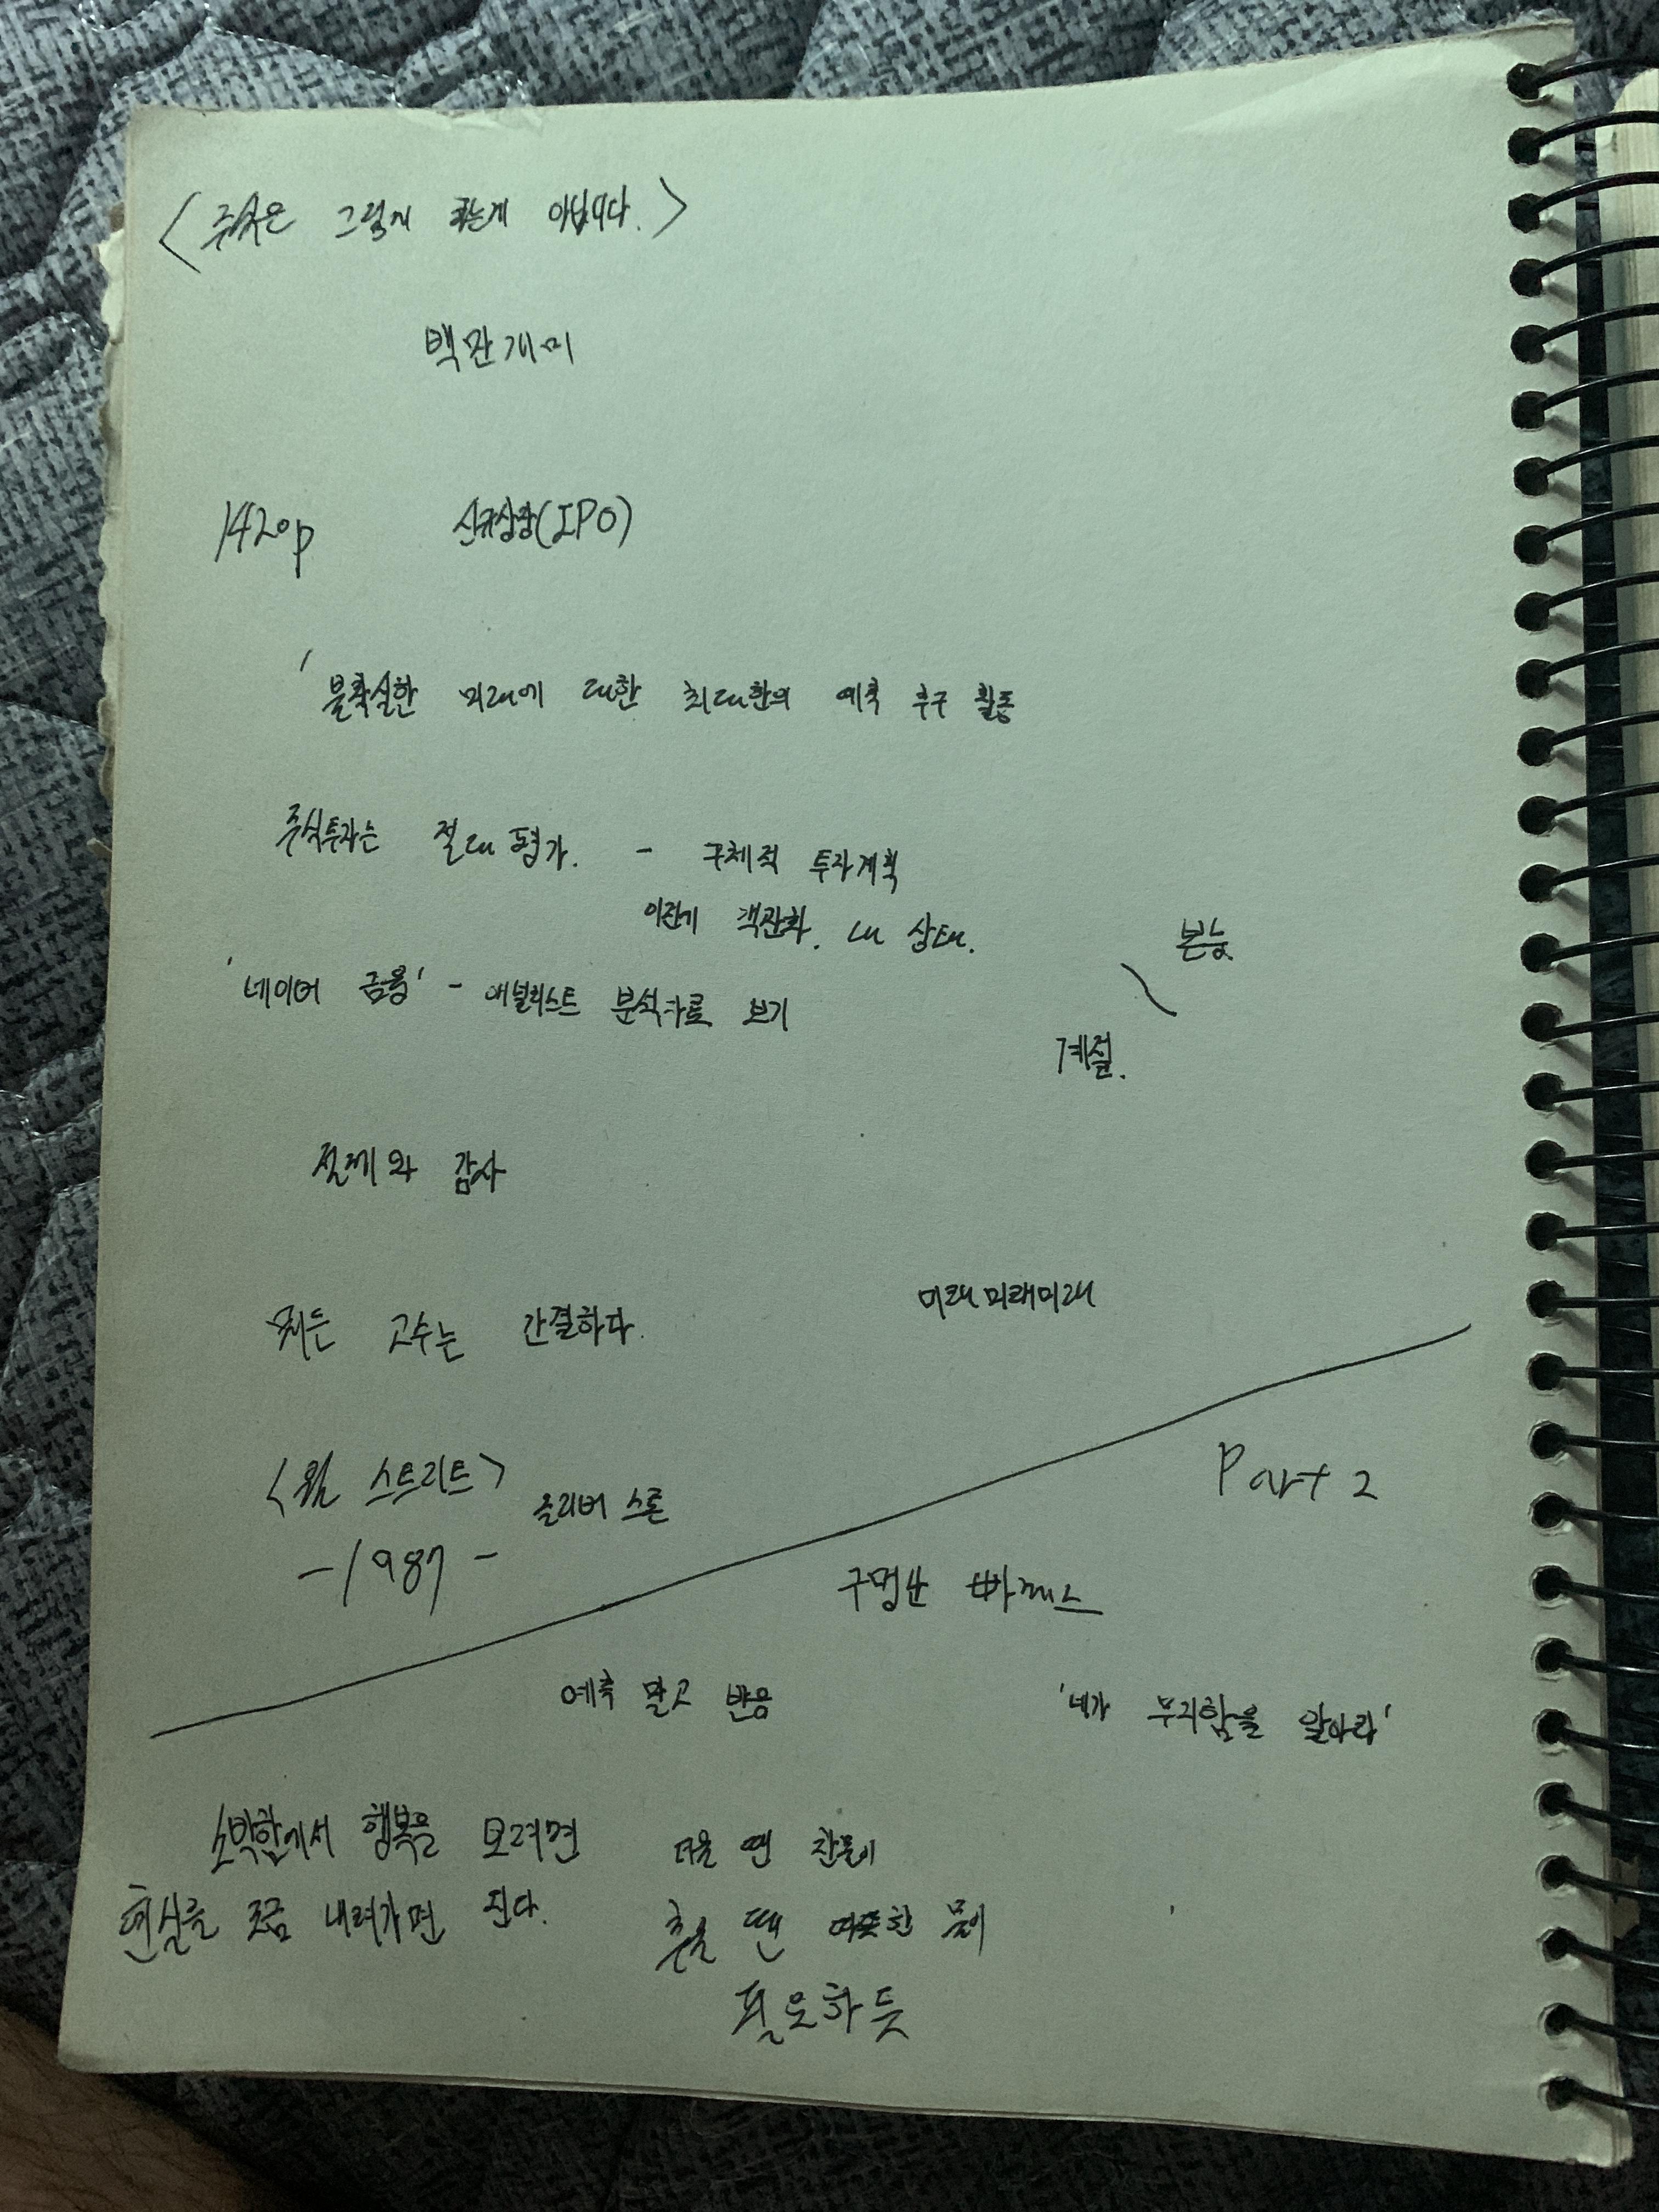 <주식은 그렇게 하는게 아닙니다.>
백만개미
142p 신규상장(IPO)
'불확실한 미래에 대한 최대한의 예측 추구 활동
주식투자는 절대평가. - 구체적 투자계획
객관화. 내 상태.
본능
'네이버 금융' - 애널리스트 분석자료 보기
계절.
절제와 감사
모든 고수는 간결하다.
미래미래미래
<월 스트리트> 올리버 스톤
-1987-
Part 2
예측 말고 반응
'네가 무지함을 알아라'
소박함에서 행복을 보려면
현실을 조금 내려가면 된다.
더울 땐 찬물이
추울 땐 따뜻한 물이
필요하듯